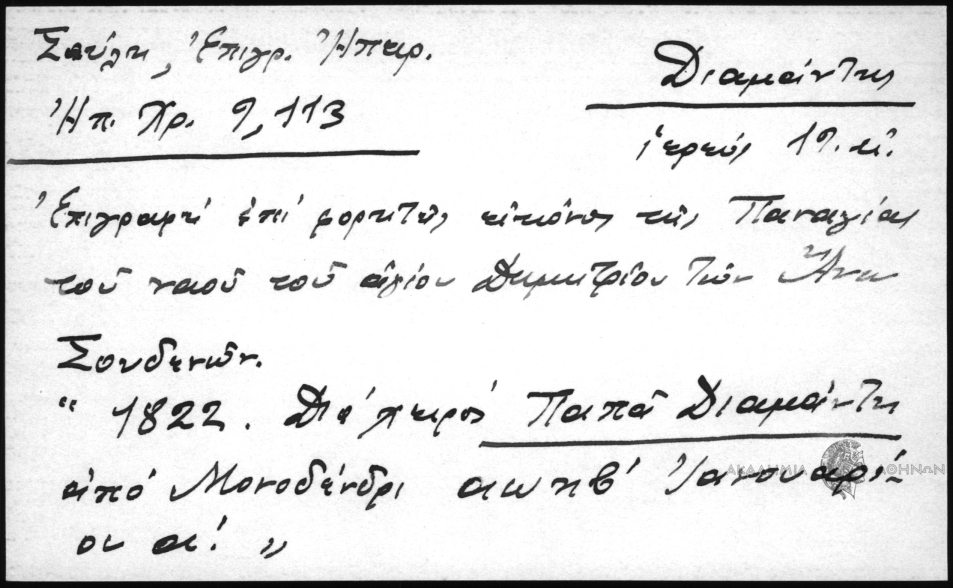 Σούλη, Ἐπιγρ. Ἠπειρ.
Ἠπ. Χρ. 9, 113
Διαμάντης
ἱερεύς 19. αἰ.
Ἐπιγραφή ἐπί φορητῆς εἰκόνος τῆς Παναγίας
τοῦ ναοῦ τοῦ ἁγίου Δημητρίου τῶν Ἄνω
Σουδενῶν.
" 1822. Διά χειρός Παπᾶ Διαμάντη
ἀπό Μονοδένδρι αωκβ΄ Ἰανουαρί-
ου α΄. "
ΑΚΑΔΗΜΙΑ ΑΘΗΝΩΝ